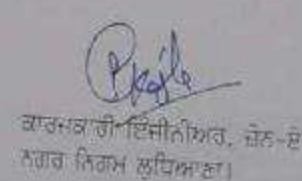 ਕਾਰਜਕਾਰੀ ਇੰਜੀਨੀਅਰ, ਜ਼ੋਨ-ਏ
ਨਗਰ ਨਿਗਮ ਲੁਧਿਆਣਾ।